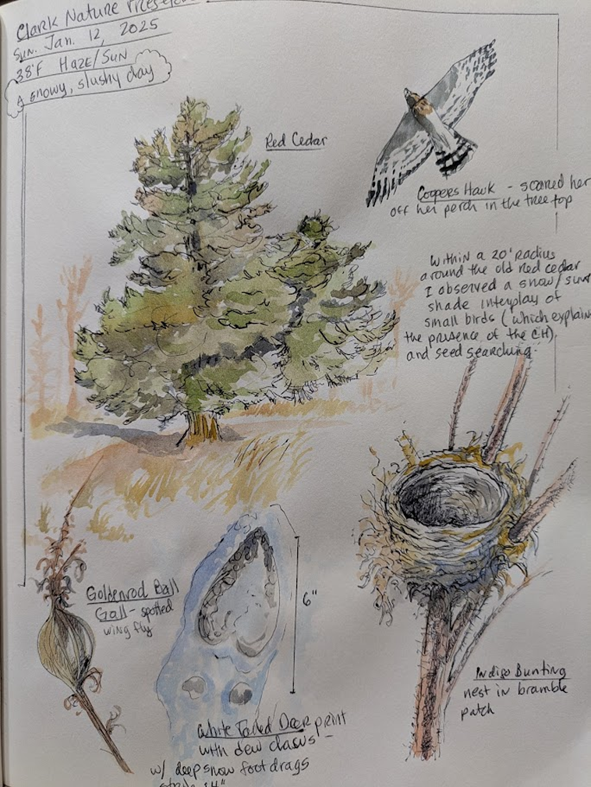 Clark Nature Preserve
Sun. Jan. 12, 2025
38°F Haze/Sun
A snowy, slushy day
Red Cedar
Coopers Hawk - scared her
off her perch in the tree top
Within a 20' radius
around the old red cedar
I observed a snow/sun
shade interplay of
small birds (which explains
the presence of the CH)
and seed searching.
Goldenrod Ball
Gall - spotted
wing fly
6"
White Tailed Deer print
with dew claws -
w/ deep snow foot drags
Indigo Bunting
nest in bramble
patch